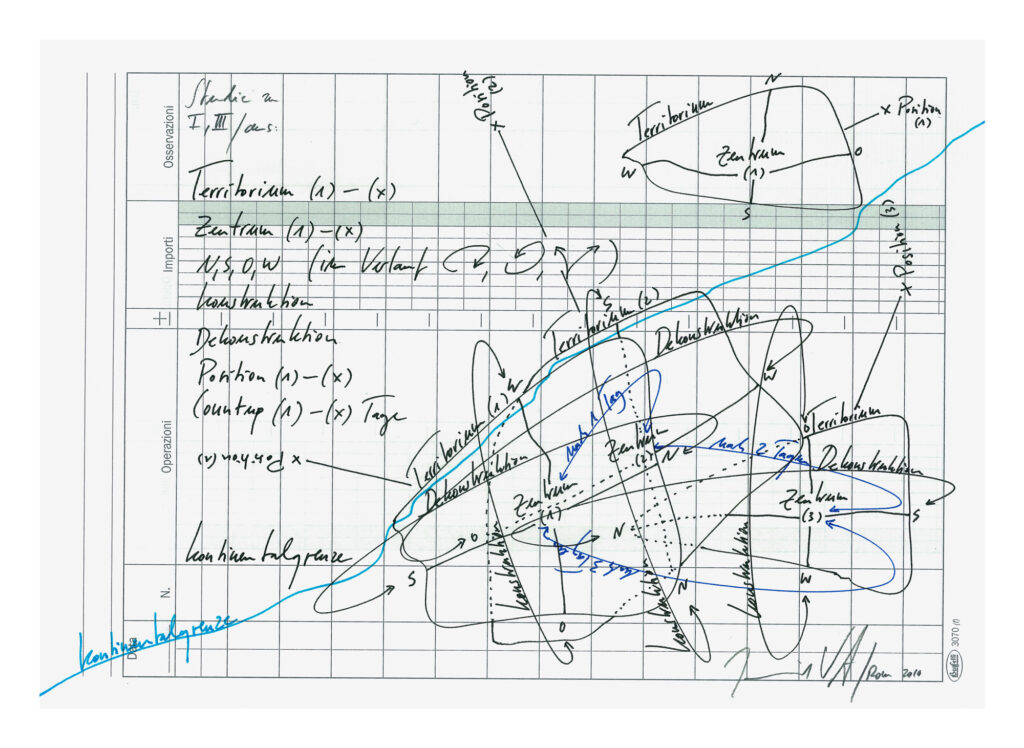 Studie zu
I, III/aus:
Territorium (1) – (x)
Zentrum (1) – (x)
N, S, O, W (im Verlauf , , )
Konstruktion
Dekonstruktion
Position (1) – (x)
Countup (1) – (x) Tage
x Position (1)
Kontinentalgrenze
Kontinentalgrenze
Osservazioni
Importi
Operazioni
N.
x Position (2)
Territorium
N
x Position (1)
Zentrum (1)
O
W
S
x Position (3)
S
Territorium (2)
Dekonstruktion
W
W
Territorium (1)
nach 1 Tag
O
Territorium
Dekonstruktion
Zentrum (2)
N
nach 2 Tagen
Dekonstruktion
Zentrum (1)
Zentrum (3)
S
O
N
nach 3 Tagen
S
Konstruktion
Konstruktion
Konstruktion
N
W
O
Rom 2010
buffetti 3070